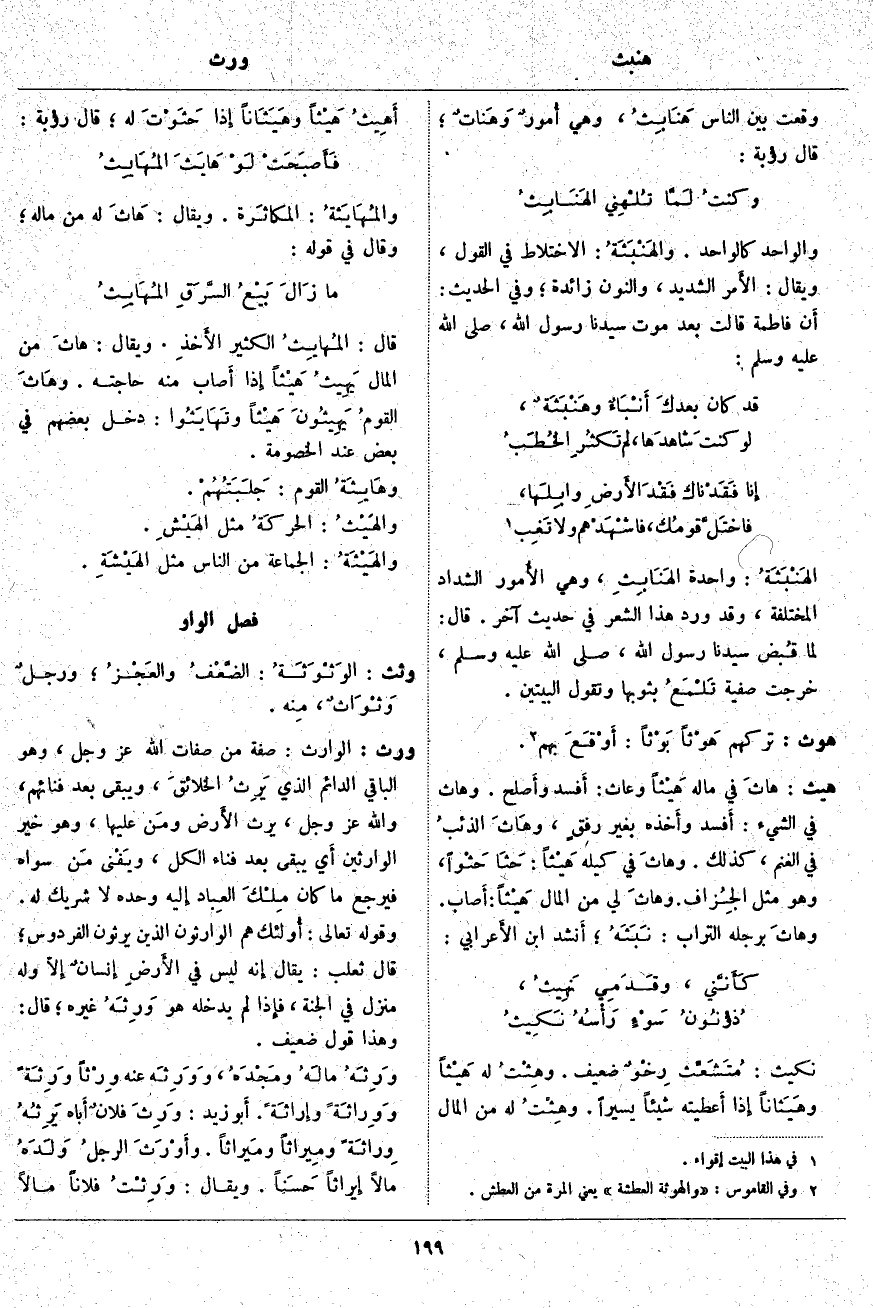 هنبث
ورث
وقعت بين الناس هَنَابِثُ ، وهي أُمورٌ وَهَنَاتٌ ؛
قال رؤبة :
وكنتُ لَمَّا تُلْهِني الهَنَابِثُ
والواحد كالواحد . والهَنْبَثَةُ : الاختلاط في القول ،
ويقال : الأَمر الشديد ، والنون زائدة ؛ وفي الحديث :
أن فاطمة قالت بعد موت سيدنا رسول الله ، صلى الله
عليه وسلم :
قد كان بعدكَ أَنْبَاءٌ وهَنْبَثَةٌ ،
لو كنتَ شاهدَها ، لم تَكثُرِ الخُطَبُ
إنا فَقَدْناك فَقْدَ الأَرضِ وابِلَها ،
فاختَلَّ قومُك ، فاشْهَدْهم ولا تَغِبِ ١
الهَنْبَثَةُ : واحدة الهَنَابِثِ ، وهي الأُمور الشداد
المختلفة ، وقد ورد هذا الشعر في حديث آخر . قال :
لما قُبِض سيدنا رسول الله ، صلى الله عليه وسلم ،
خرجت صفية تَلْمَعُ بثوبها وتقول البيتين .
هوث : تركهم هَوْثاً بَوْثاً : أَوْقَعَ بهم ٢ .
هيث : هاثَ في ماله هَيْثاً وعاث : أفسد وأصلح . وهاث
في الشيء : أفسد وأخذه بغير رفقٍ ، وهَاثَ الذئبُ
في الغنم ، كذلك . وهاثَ في كيله هَيْثاً : حَثَا حَثْواً ،
وهو مثل الجُزاف . وهاثَ لي من المال هَيْثاً : أصاب .
وهاثَ برجله التراب : نَبَثَهُ ؛ أنشد ابن الأعرابي :
كَأَنَّني ، وقَدَمِي تَهِيثُ ،
ذُؤنُونُ سَوْءٍ رَأْسُهُ نَكِيثُ
نكيث : مُتَشَعِّث رِخْوٌ ضعيف . وهِثْت له هَيْثاً
وهَيَثاناً إذا أعطيته شيئاً يسيراً . وهِثْتُ له من المال
١ في هذا البيت إقواء .
٢ وفي القاموس : «والهوثة العطشة» يعني المرة من العطش .
أَهِيثُ هَيْثاً وهَيَثَاناً إذا حَثَوْتَ له ؛ قال رؤبة :
فَأَصبَحَتْ لَوْ هَايَثَ المُهَايِثُ
والمُهَايَثةُ : المكاثَرة . ويقال : هَاثَ له من ماله ؛
وقال في قوله :
ما زَالَ بَيْعُ السَّرَقِ المُهَايِثُ
قال : المُهايِثُ الكثير الأَخذِ . ويقال : هاثَ من
المال يَهِيثُ هَيْثاً إذا أصاب منه حاجته . وهَاثَ
القومُ يَهِيثُونَ هَيْثاً وتَهَايَثُوا : دخل بعضهم في
بعض عند الخصومة .
وهَايِثَةُ القوم : جَلَبَتُهُمْ .
والهَيْثُ : الحركةُ مثل الهَيْشِ .
والهَيْثَةُ : الجماعة من الناس مثل الهَيْشَةِ .
فصل الواو
وثث : الوَثْوَثَةُ : الضَّعْفُ والعَجْزُ ؛ ورجلٌ
وَثْوَاثٌ ، مِنه .
ورث : الوارث : صفة من صفات الله عز وجل ، وهو
الباقي الدائم الذي يَرِثُ الخلائقَ ، ويبقى بعد فنائهم ،
والله عز وجل ، يرث الأَرض ومَن عليها ، وهو خير
الوارثين أي يبقى بعد فناء الكل ، ويَفْنى مَن سواه
فيرجع ما كان مِلْكَ العِباد إليه وحده لا شريك له .
وقوله تعالى : أُولئك هم الوارثون الذين يرثون الفردوس ؛
قال ثعلب : يقال إنه ليس في الأَرضِ إنسانٌ إلاّ وله
منزل في الجنة ، فإذا لم يدخله هو وَرِثَهُ غيره ؛ قال :
وهذا قول ضعيف .
وَرِثَهُ مالَهُ ومَجْدَهُ ، وَوَرِثَه عنه وِرْثاً وَرِثَةً
وَوِرَاثَةً وإِراثَةً . أبو زيد : وَرِثَ فلانٌ أباه يَرِثُهُ
وِراثَةً ومِيراثاً ومَيراثاً . وأَوْرَثَ الرجلُ وَلَدَهُ
مالاً إيراثاً حَسَناً . ويقال : وَرِثْتُ فلاناً مالاً
١٩٩